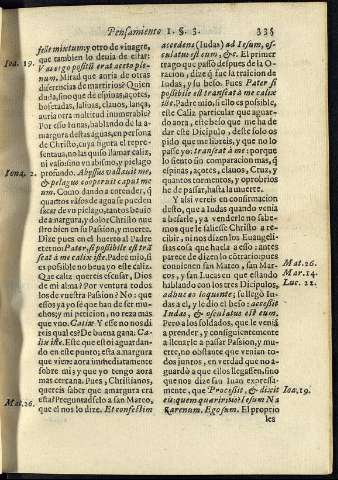 Pensamiento I. §. 3.
335
felle mixtum; y otro de vinagre,
que tambien lo deuia de estar:
Ioa. 19.
Vas ergo positũ erat aceto ple-
num. Mirad que auria de otras
diferencia de martirios? Quien
duda, sino que de espinas, açotes,
bofetadas, saliuas, clauos, lança,
auria otra multitud innumerable?
Por esso Iunas, hablando de la a-
margura destas aguas, en persona
de Christo, cuya figura el repre-
sentaua, no las quiso llamar caliz,
ni vaso sino vn abismo, y pielago
Iona. 2.
profundo. Abyssus vallauit me,
& pelagus cooperuit caput me
um. Como dando a entender, q̃
quantos vasos de agua se pueden
sacar de vn pielago, tantos beuio
de amargura, y dolor Christo nue
stro bien en su Passion, y muerte.
Dize pues en el huerto al Padre
eterno: Pater, si possibile est trã
seat à me calix iste. Padre mio, si
es possible no beua yo este caliz.
Que caliz quereis escusar, Dios
de mi alma? Por ventura todos
los de vuestra Passion? No: que
essos ya yo sè que han de ser mu-
chos; y mi peticion, no reza mas
que vno. Calix. Y esse no nos di
reis qual es? De buena gana. Ca-
lix iste. Este que estoi aguardan-
do en este punto; esta amargura
que viene aora immediatamente
sobre mi; y que yo tengo aora
mas cercana. Pues, Christianos,
quereis saber que amargura era
esta? Preguntadselo a san Marco,
Mat. 26.
que el nos lo dize. Et confestim
accedens (Iudas) ad Iesum, os-
culatus est eum, &c. El primer
trago que passò despues de la O-
racion, dize q̃ fue la traicion de
Iudas, y su beso. Pues Pater si
possibile est transeat à me calix
iste. Padre mio, si ello es possible,
este Caliz particular que aguar-
do aora, este beso que me ha de
dar este Dicipulo, deste solo os
pido que me libreis, y que no lo
passe yo: transeat à me: porque
lo siento sin comparacion mas, q̃
espinas, açotes, clauos, Cruz, y
quantos tormentos, y oprobrios
he de passar, hasta la muerte.
Y assi vereis en consirmacion
desto, que a Iudas quando venia
a besarle, y a venderle no sabe-
mos que le saliesse Christo a re-
cibir, ni nos dizen los Euangelis-
tas cosa que haela a esso: antes
parece de dizen lo cõtrario: pues
Mat. 26.
conuienen san Mateo, san Mar-
Mar. 14.
cos, y san Lucas en que estando
Luc. 22.
hablando con los tres Dicipulos,
adhuc eo loquente; se llegò Iu-
das a el, y le dio el beso: accessit
Iudas, & osculatus est eum.
Pero a los soldados, que le veniã
a prender, y consiguientemente
a lleuarle a passar Passion, y mu-
erte, no obstante que venian to-
dos juntos, en verdad que no a-
guardò a que ellos llegassen, sino
que nos dize san Iuan expressa-
Ioa. 19.
mente, que Processit, & dixit
eis: quem quæritis? Iesum Na
zarenum. Ego sum. El proprio
les